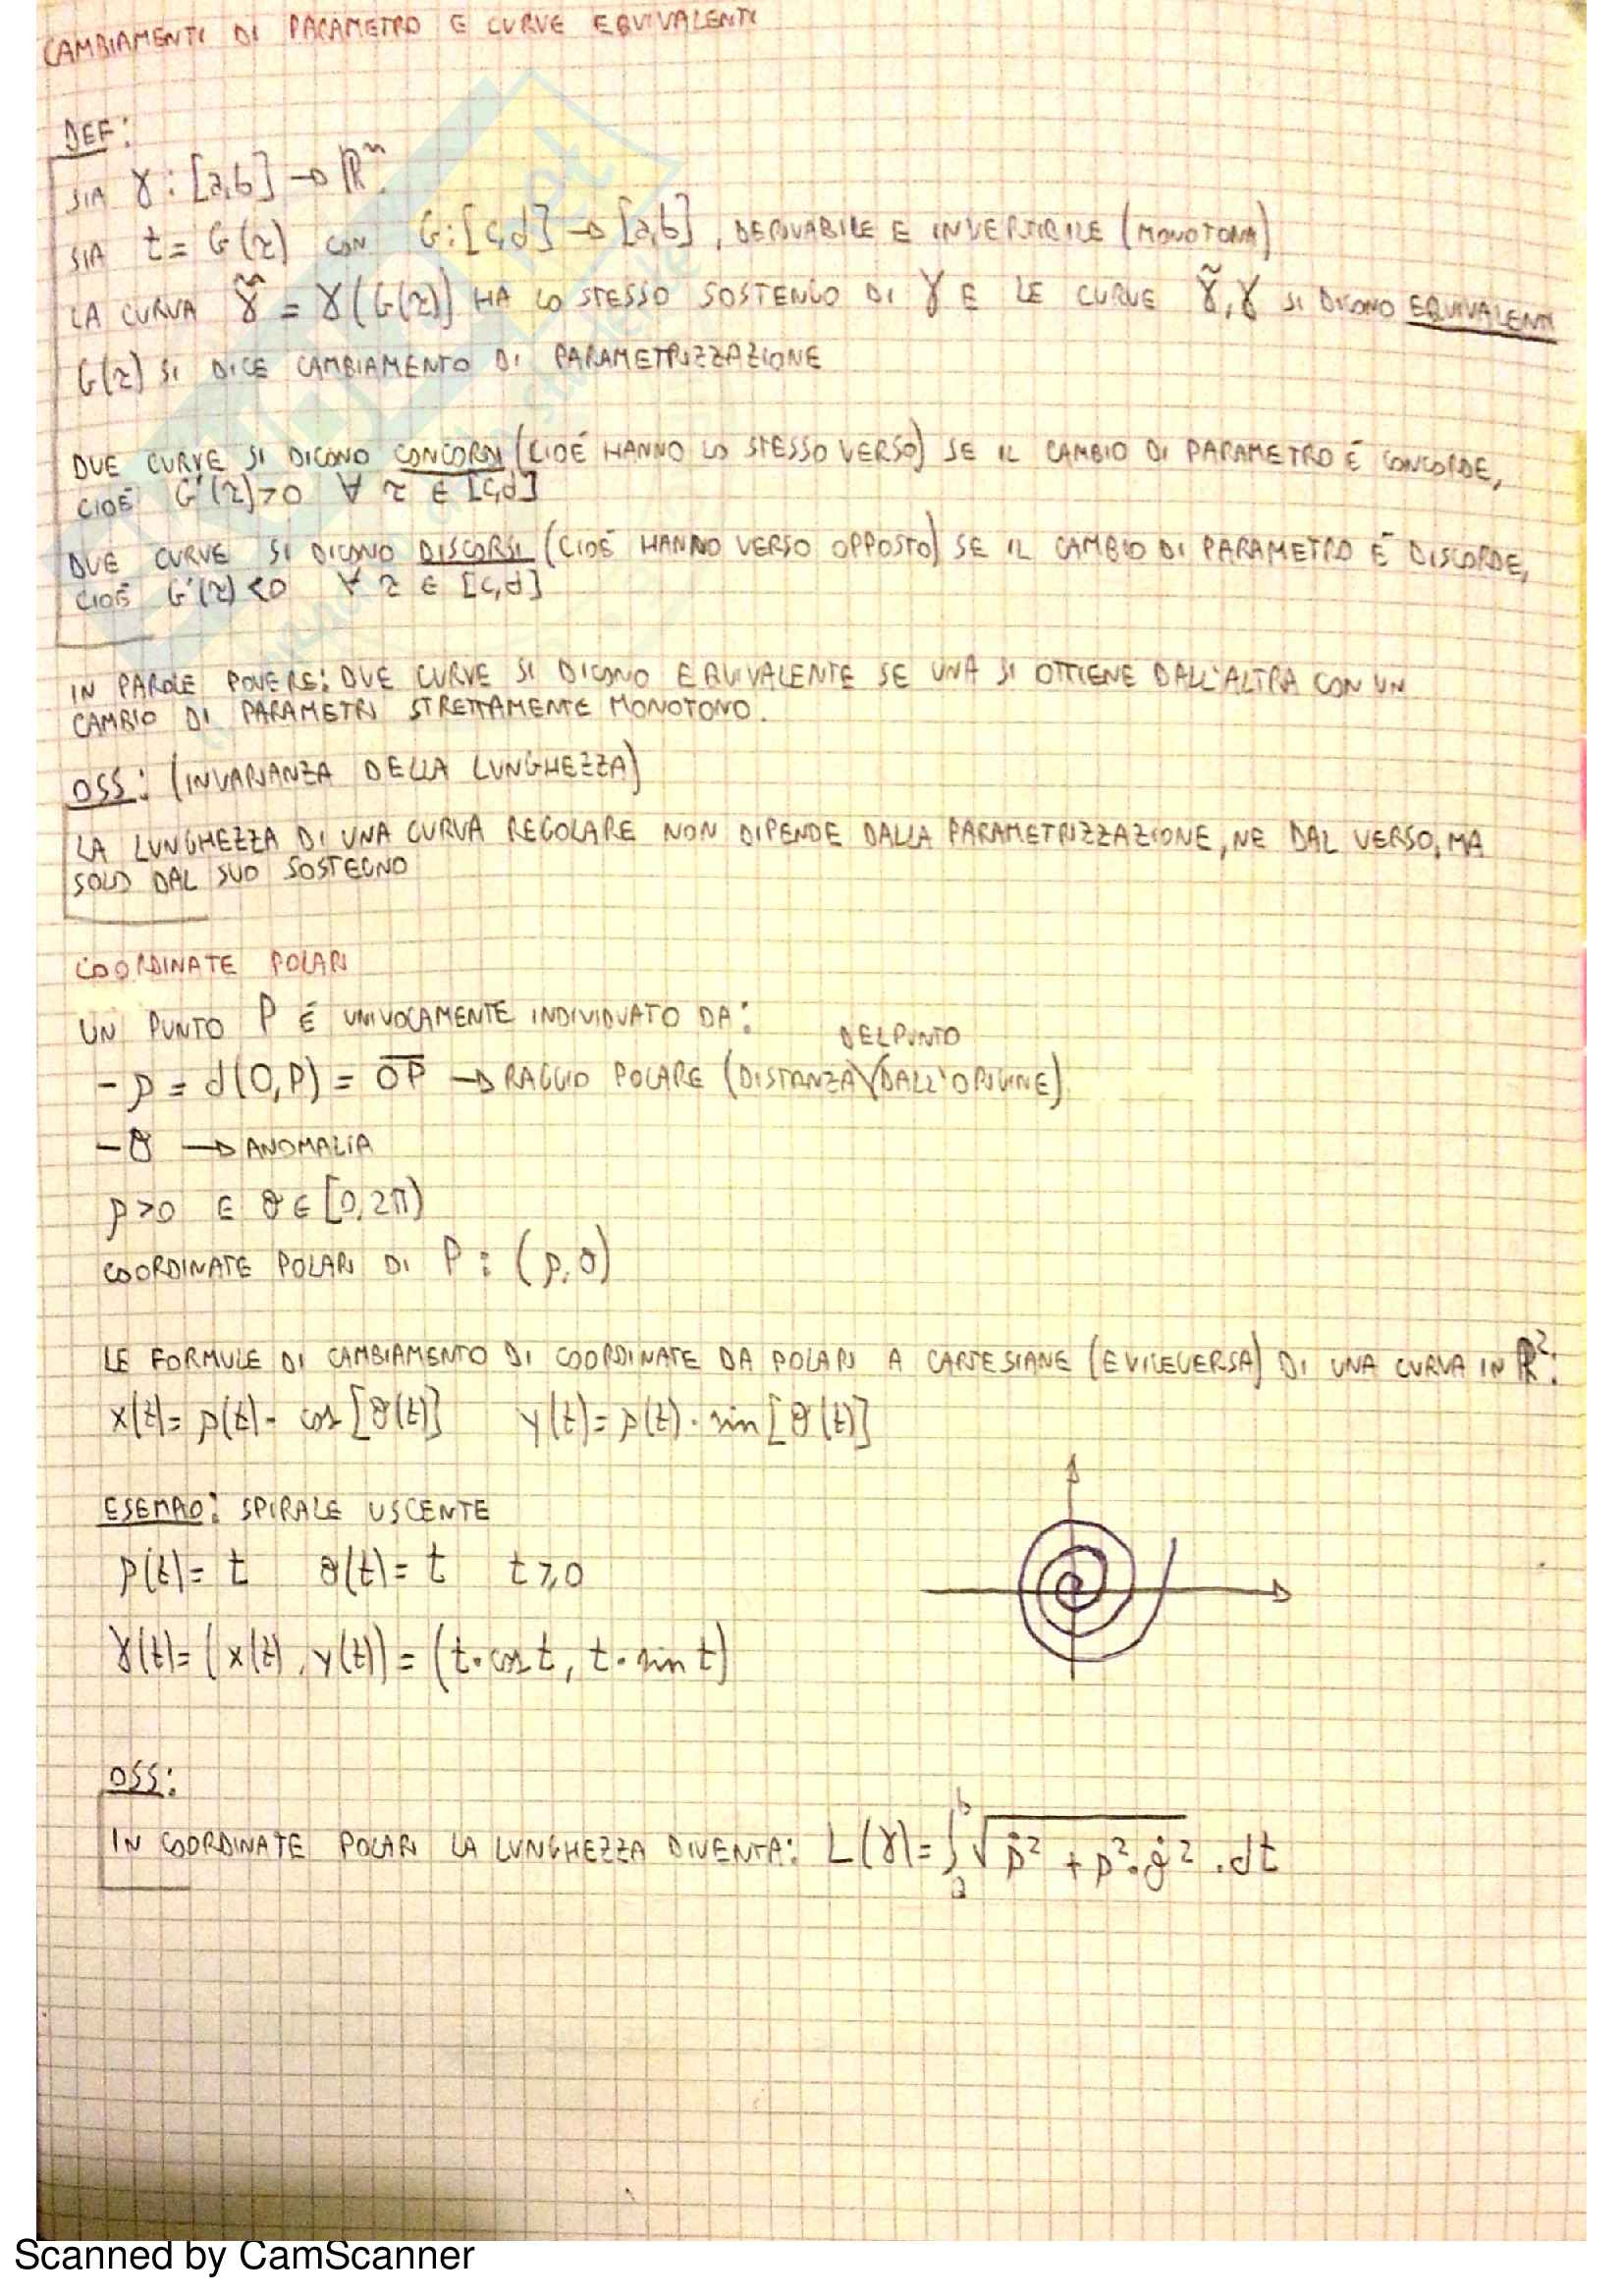 CAMBIAMENTI DI PARAMETRO E CURVE EQUIVALENTI
DEF:
SIA γ: [a,b] → ℝⁿ.
SIA t = G(τ) CON G: [c,d] → [a,b], DERIVABILE E INVERTIBILE (MONOTONA)
LA CURVA γ̃ = γ(G(τ)) HA LO STESSO SOSTEGNO DI γ E LE CURVE γ̃, γ SI DICONO EQUIVALENTI
G(τ) SI DICE CAMBIAMENTO DI PARAMETRIZZAZIONE
DUE CURVE SI DICONO CONCORDI (CIOÉ HANNO LO STESSO VERSO) SE IL CAMBIO DI PARAMETRO É CONCORDE,
CIOÉ G'(τ)>0 ∀ τ ∈ [c,d]
DUE CURVE SI DICONO DISCORSI (CIOÉ HANNO VERSO OPPOSTO) SE IL CAMBIO DI PARAMETRO É DISCORDE,
CIOÉ G'(τ)<0 ∀ τ ∈ [c,d]
IN PAROLE POVERE: DUE CURVE SI DICONO EQUIVALENTE SE UNA SI OTTIENE DALL'ALTRA CON UN
CAMBIO DI PARAMETRI STRETTAMENTE MONOTONO.
OSS: (INVARIANZA DELLA LUNGHEZZA)
LA LUNGHEZZA DI UNA CURVA REGOLARE NON DIPENDE DALLA PARAMETRIZZAZIONE, NE DAL VERSO, MA
SOLO DAL SUO SOSTEGNO
COORDINATE POLARI
UN PUNTO P É UNIVOCAMENTE INDIVIDUATO DA:
DEL PUNTO
- ρ = d(O,P) = OP → RAGGIO POLARE (DISTANZA (DALL'ORIGINE)
- θ → ANOMALIA
ρ>0 E θ ∈ [0,2π)
COORDINATE POLARI DI P: (ρ,θ)
LE FORMULE DI CAMBIAMENTO DI COORDINATE DA POLARI A CARTESIANE (E VICEVERSA) DI UNA CURVA IN ℝ²:
x(t)= ρ(t)· cos [θ(t)] y(t)= ρ(t)· sin [θ(t)]
ESEMPIO: SPIRALE USCENTE
ρ(t)= t θ(t)= t t ⩾ 0
γ(t)= (x(t), y(t)) = (t·cos t, t·sin t)
OSS:
IN COORDINATE POLARI LA LUNGHEZZA DIVENTA: L(γ)= ∫ₐᵇ √(ρ̇² + ρ²·θ̇²) · dt
Scanned by CamScanner